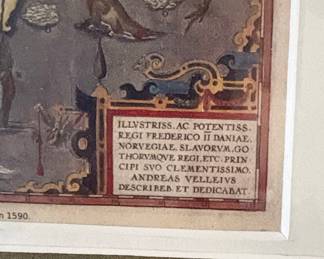 ILLVSTRISS. AC POTENTISS.
REGI FREDERICO II DANIAE,
NORVEGIAE, SLAVORVM, GO
THORVMQVE REGI, ETC. PRIN
CIPI SVO CLEMENTISSIMO.
ANDREAS VELLEIVS
DESCRIBEB. ET DEDICABAT.
1590.